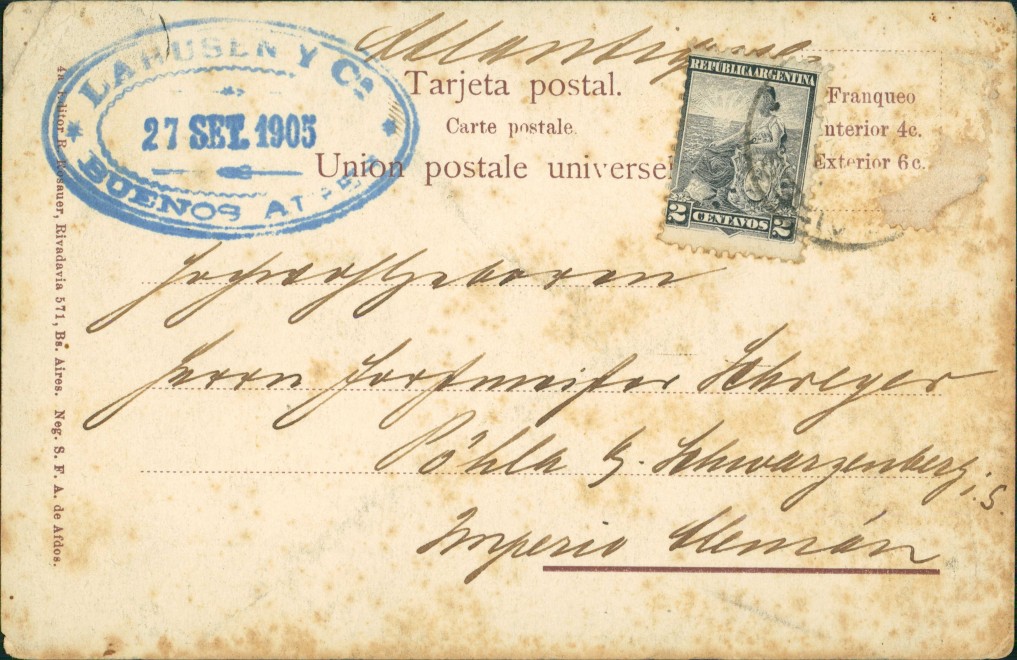 LAHUSEN Y Ca
27 SET. 1905
BUENOS AIRES
Tarjeta postal.
Carte postale.
Union postale universel
REPÚBLICA ARGENTINA
2 CENTAVOS 2
Franqueo
Interior 4c.
Exterior 6c.
Hochwohlgeboren
Herrn Forstmeister Schreyer
Pöhla b. Schwarzenberg i. S.
Imperio Alemán
4a Editor R. Rosauer, Rivadavia 571, Bs. Aires. Neg. S. F. A. de Afdos.